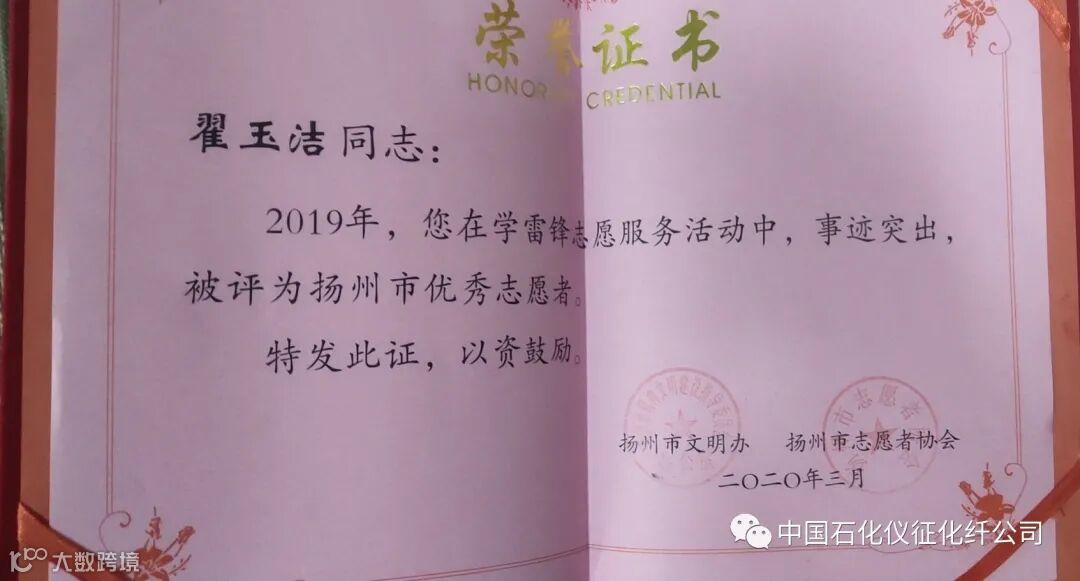 荣誉证书
HONORARY CREDENTIAL
翟玉洁同志：
2019年，您在学雷锋志愿服务活动中，事迹突出，
被评为扬州市优秀志愿者。
特发此证，以资鼓励。
扬州市文明办 扬州市志愿者协会
二〇二〇年三月
中国石化仪征化纤公司
大数跨境